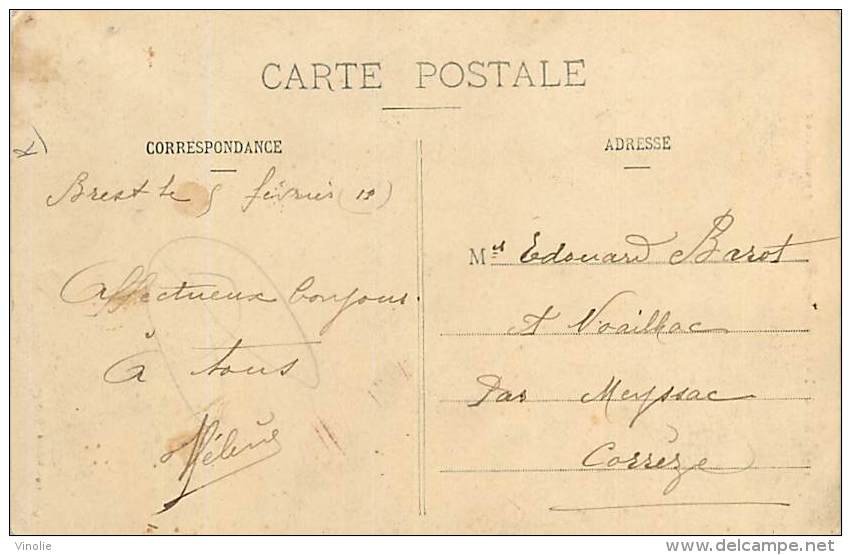 CARTE POSTALE
CORRESPONDANCE
Brest le 5 février (18)
Affectueux bonjour
à tous
Hélène
ADRESSE
Mr Edouard Barot
A Noailhac
Par Meyssac
Corrèze
Vinolie
http://www.delcampe.net